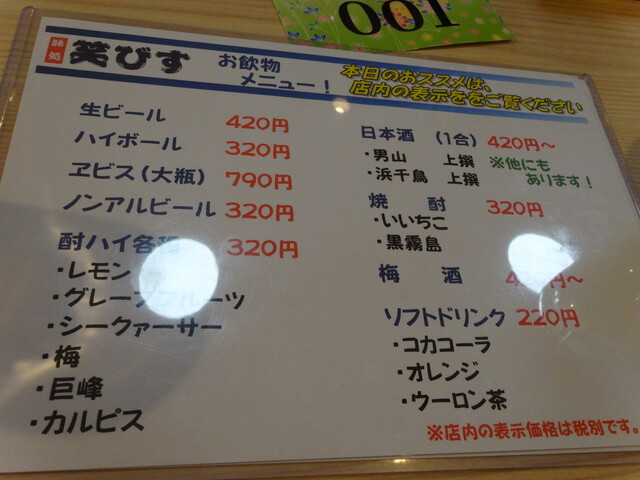 001
味処 笑びす お飲物メニュー！
本日のおススメは、
店内の表示ををご覧ください
生ビール 420円
ハイボール 320円
ヱビス(大瓶) 790円
ノンアルビール 320円
酎ハイ各 320円
・レモン
・グレープフルーツ
・シークァーサー
・梅
・巨峰
・カルピス
日本酒 (1合) 420円～
・男山 上撰
・浜千鳥 上撰
※他にも
あります！
焼酎 320円
・いいちこ
・黒霧島
梅酒 円～
ソフトドリンク 220円
・コカコーラ
・オレンジ
・ウーロン茶
※店内の表示価格は税別です。